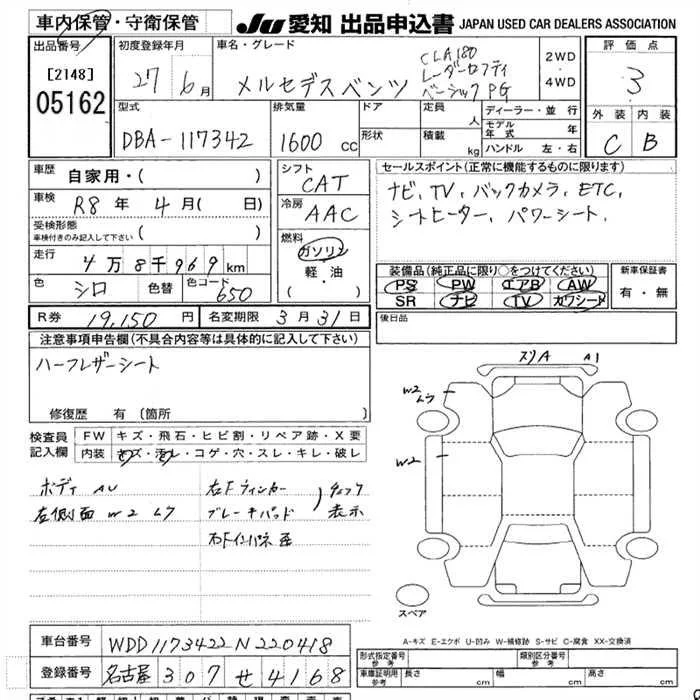 車内保管・守衛保管 JU 愛知 出品申込書 JAPAN USED CAR DEALERS ASSOCIATION
出品番号 [2148] 05162
初度登録年月 27年 6月
車名・グレード メルセデスベンツ CLA180 レーダーセフティ ベーシックPG
2WD
4WD
評価点 3
型式 DBA-117342
排気量 1600 cc
ドア
形状
定員 人
積載 kg
ディーラー・並行
モデル年式 年
ハンドル 左・右
外装 内装
C B
車歴 自家用・( )
車検 R8年 4月( 日)
受検形態 ( )
車検付きのみ記入して下さい
走行 4万8千969km
色 シロ 色替 色コード 650
シフト CAT
冷房 AAC
燃料 ガソリン
軽・油
( ・ )
セールスポイント(正常に機能するものに限ります)
ナビ、TV、バックカメラ、ETC、
シートヒーター、パワーシート、
装備品(純正品に限り○をつけてください)
PS PW エアB AW
SR ナビ TV カワシート
新車保証書
有・無
後日品
R券 19,150円 名変期限 3月31日
注意事項申告欄(不具合内容等は具体的に記入して下さい)
ハーフレザーシート
修復歴 有 〔箇所 〕
検査員記入欄
FW キズ・飛石・ヒビ割・リペア跡・X要
内装 キズ・汚レ・コゲ・穴・スレ・キレ・破レ
ボディ AU
左側面 W2 ムラ
ブレーキパッド
チェック表示
スリA A1
W2 ムラ
W2
スペア
A-キズ E-エクボ U-凹み W-補修跡 S-サビ C-腐食 XX-交換済
車台番号 WDD1173422N220418
登録番号 名古屋 307 せ 4168
形式指定番号 参考
類別区分番号 参考
車庫証明用 参考
長さ cm
幅 cm
高さ cm